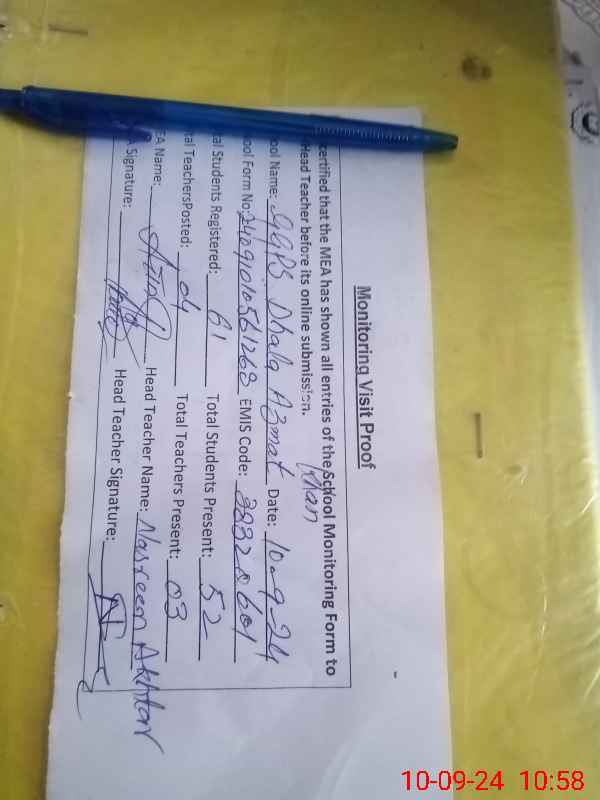 Monitoring Visit Proof
certified that the MEA has shown all entries of the School Monitoring Form to
Head Teacher before its online submission.
Khan
ool Name: GGPS Dhala Azmat Date: 10-9-24
ool Form No: EMIS Code: 38320601
tal Students Registered: 61 Total Students Present: 52
tal TeachersPosted: 04 Total Teachers Present: 03
EA Name: Head Teacher Name: Nasreen Akhtar
Signature: Head Teacher Signature:
10-09-24 10:58